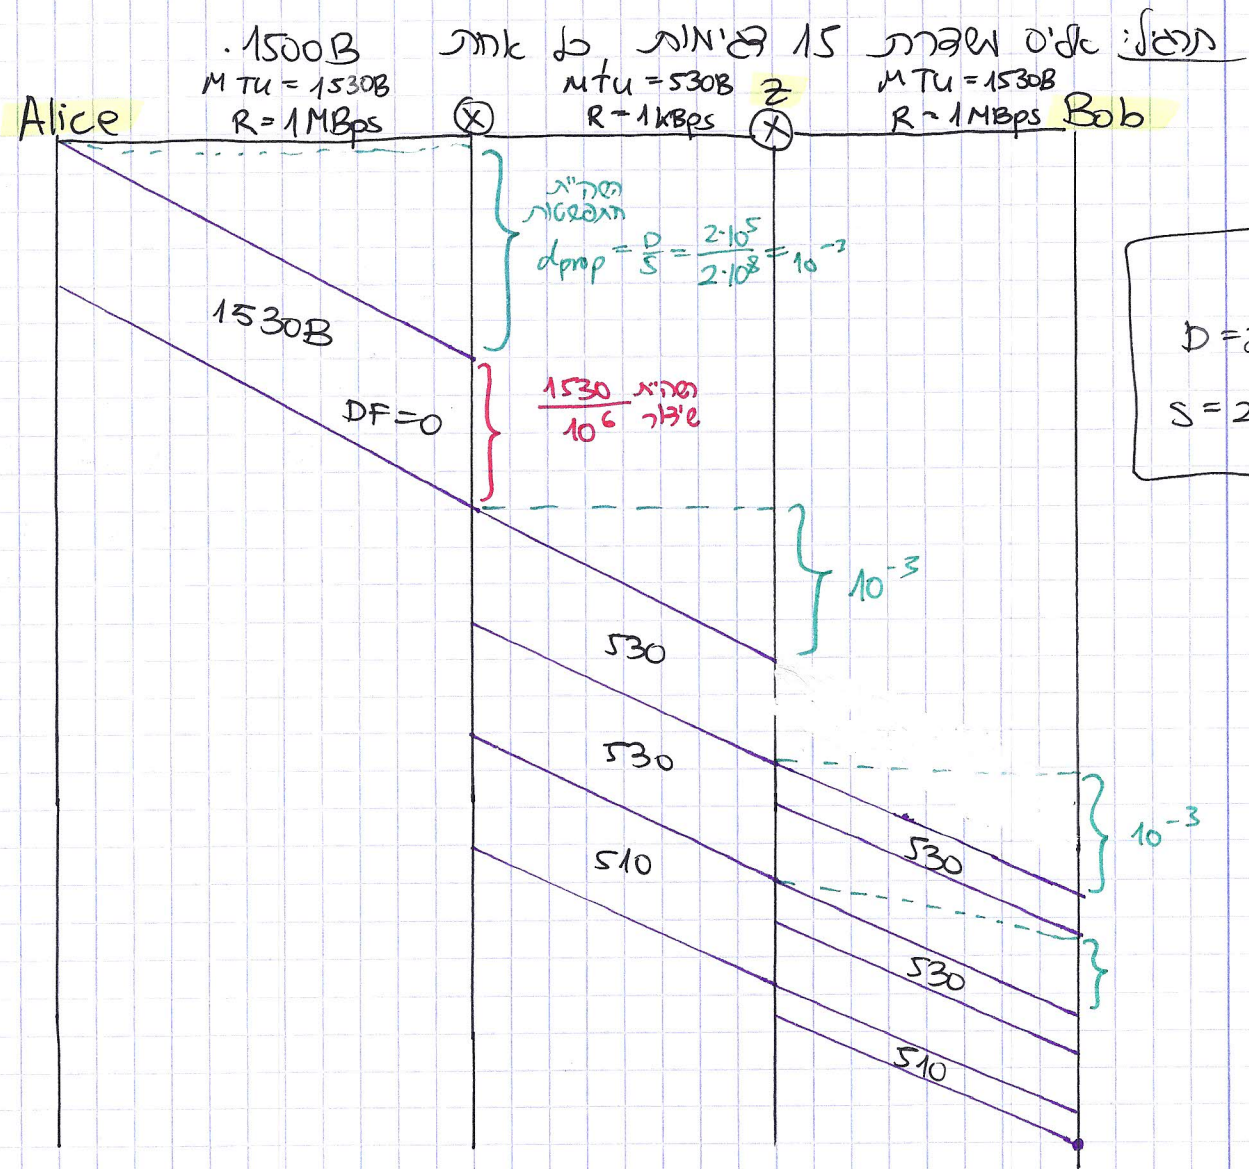 תרגיל: אליס משדרת 15 דגימות כל אחת 1500B.
MTU = 1530B
R = 1MBps
MTU = 530B
R = 1kBps
MTU = 1530B
R = 1MBps
Alice
Z
Bob
השה"ת
התפשטות
dprop = D/S = 2·10^5/2·10^8 = 10^-3
1530B
DF=0
1530/10^6 השה"ת
שידור
D =
S = 2
10^-3
530
530
510
10^-3
530
530
510